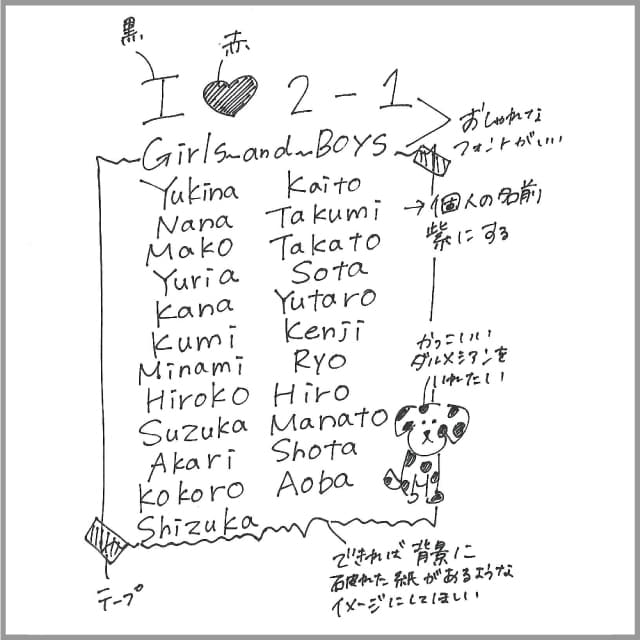 黒
赤
I ♥ 2-1
おしゃれな
フォントがいい
Girls~and~BOYS
Yukina Kaito
Nana Takumi
→個人の名前
紫にする
Mako Takato
Yuria Sota
Kana Yutaro
Kumi Kenji
かっこいい
ダルメシアンを
いれたい
Minami Ryo
Hiroko Hiro
Suzuka Manato
Akari Shota
Kokoro Aoba
Shizuka
できれば背景に
破れた紙があるような
イメージにしてほしい
テープ